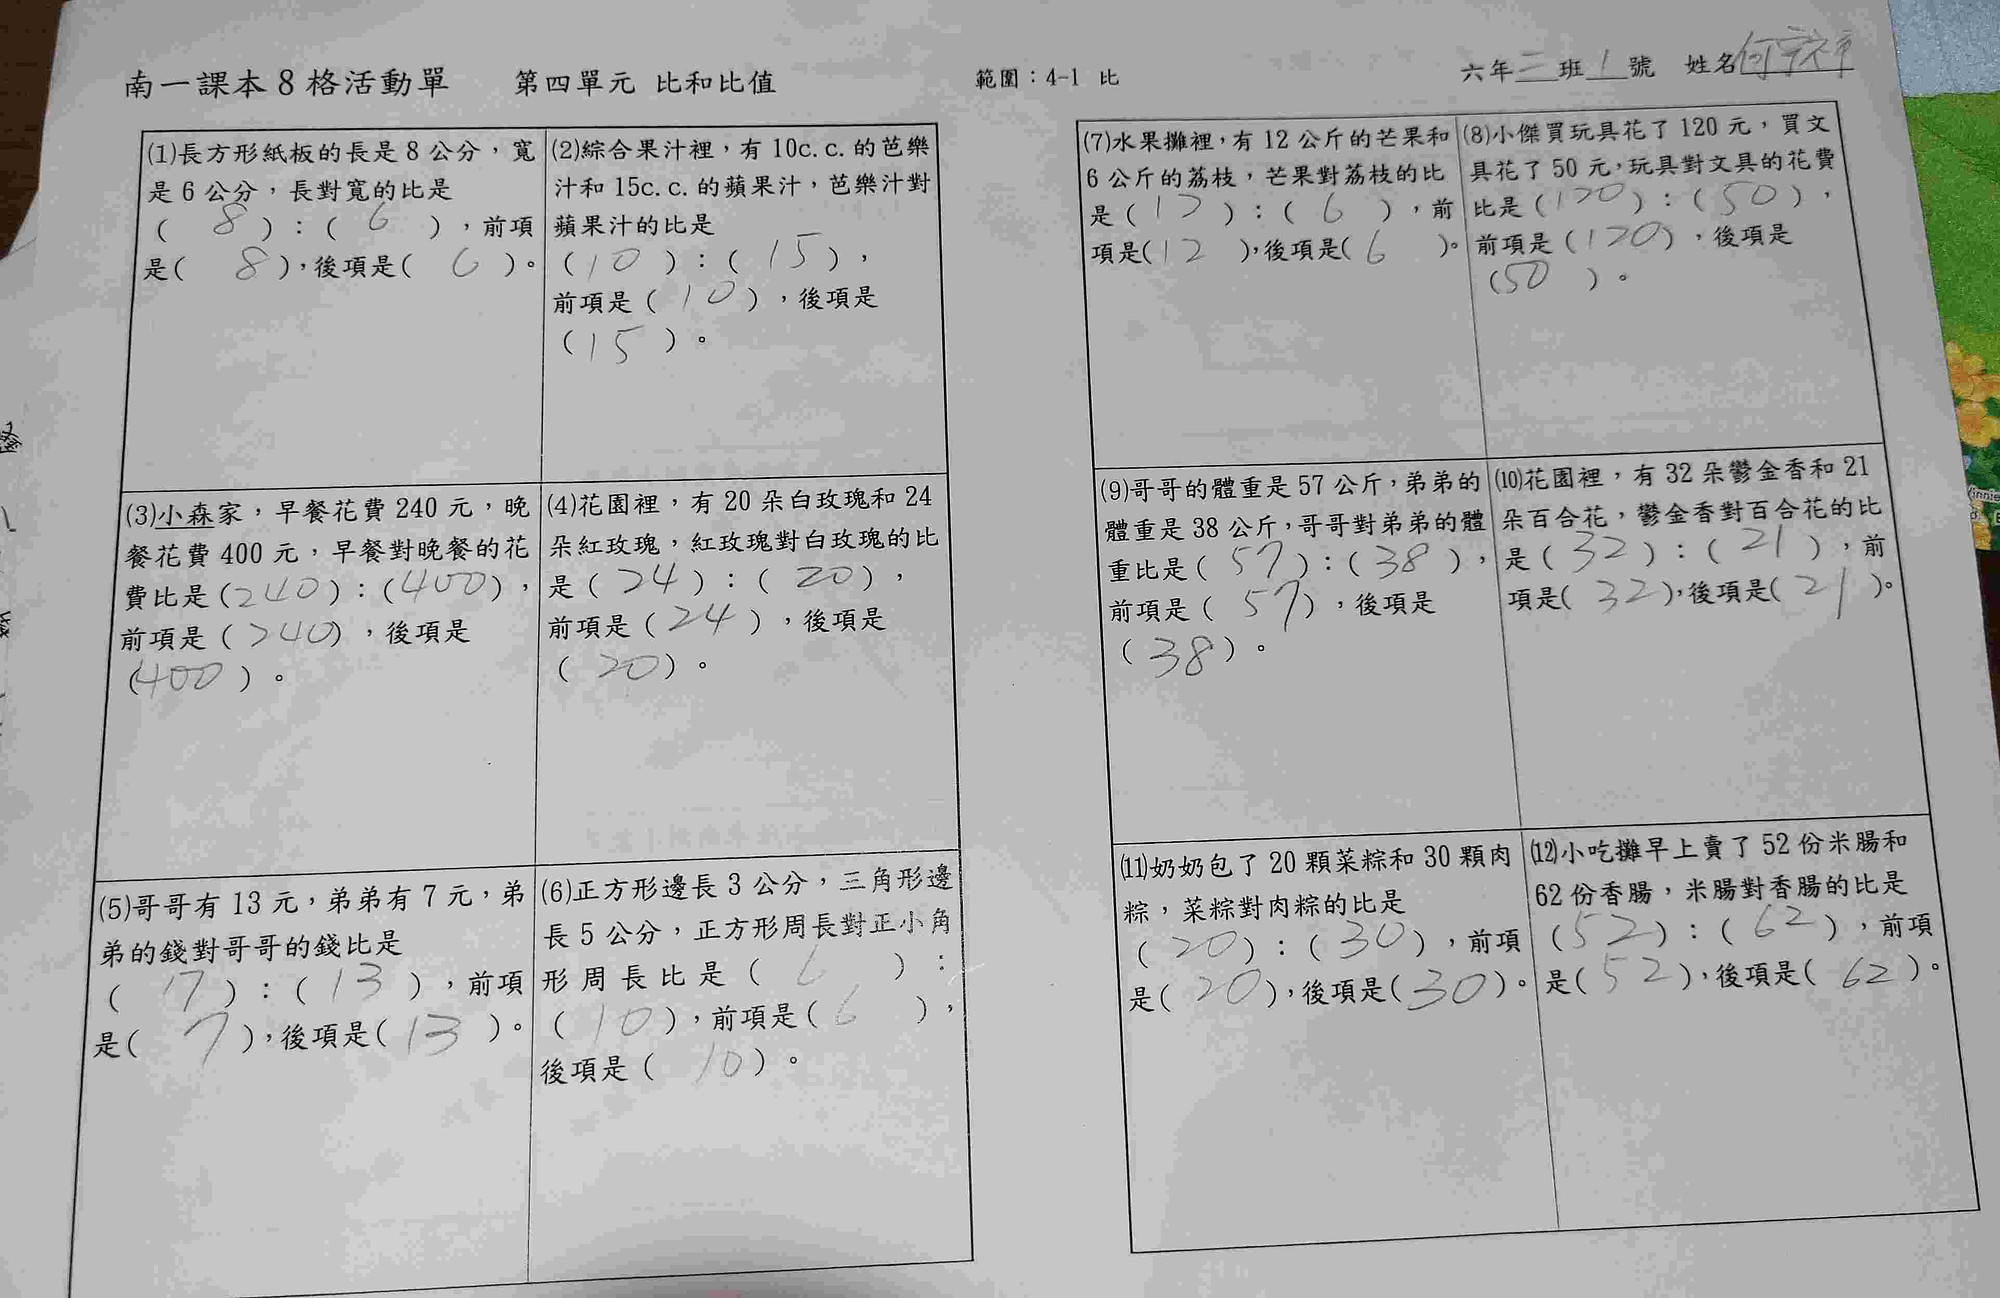 南一課本8格活動單 第四單元 比和比值 範圍：4-1 比 六年二班1號 姓名何
(1)長方形紙板的長是8公分，寬
是6公分，長對寬的比是
( 8 )：( 6 )，前項
是( 8 )，後項是( 6 )。
(2)綜合果汁裡，有10c.c.的芭樂
汁和15c.c.的蘋果汁，芭樂汁對
蘋果汁的比是
(10)：(15)，
前項是(10)，後項是
(15)。
(3)小森家，早餐花費240元，晚
餐花費400元，早餐對晚餐的花
費比是(240)：(400)，
前項是(240)，後項是
(400)。
(4)花園裡，有20朵白玫瑰和24
朵紅玫瑰，紅玫瑰對白玫瑰的比
是(24)：(20)，
前項是(24)，後項是
(20)。
(5)哥哥有13元，弟弟有7元，弟
弟的錢對哥哥的錢比是
(17)：(13)，前項
是(7)，後項是(13)。
(6)正方形邊長3公分，三角形邊
長5公分，正方形周長對正小角
形周長比是(6)：
(10)，前項是(6)，
後項是(10)。
(7)水果攤裡，有12公斤的芒果和
6公斤的荔枝，芒果對荔枝的比
是(12)：(6)，前
項是(12)，後項是(6)。
(8)小傑買玩具花了120元，買文
具花了50元，玩具對文具的花費
比是(120)：(50)，
前項是(120)，後項是
(50)。
(9)哥哥的體重是57公斤，弟弟的
體重是38公斤，哥哥對弟弟的體
重比是(57)：(38)，
前項是(57)，後項是
(38)。
(10)花園裡，有32朵鬱金香和21
朵百合花，鬱金香對百合花的比
是(32)：(21)，前
項是(32)，後項是(21)。
(11)奶奶包了20顆菜粽和30顆肉
粽，菜粽對肉粽的比是
(20)：(30)，前項
是(20)，後項是(30)。
(12)小吃攤早上賣了52份米腸和
62份香腸，米腸對香腸的比是
(52)：(62)，前項
是(52)，後項是(62)。